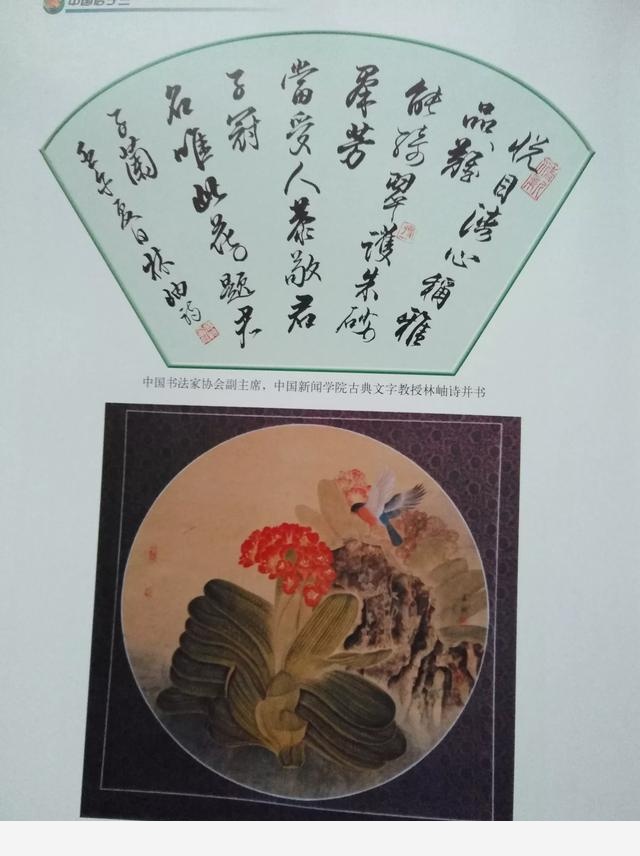 中国君子兰
悦目清心稱雅
品
能綺翠護朱砂
羣芳
當受人恭敬君
子冠
名唯此花題君
子蘭
壬午夏日林岫詩
中国书法家协会副主席，中国新闻学院古典文字教授林岫诗并书